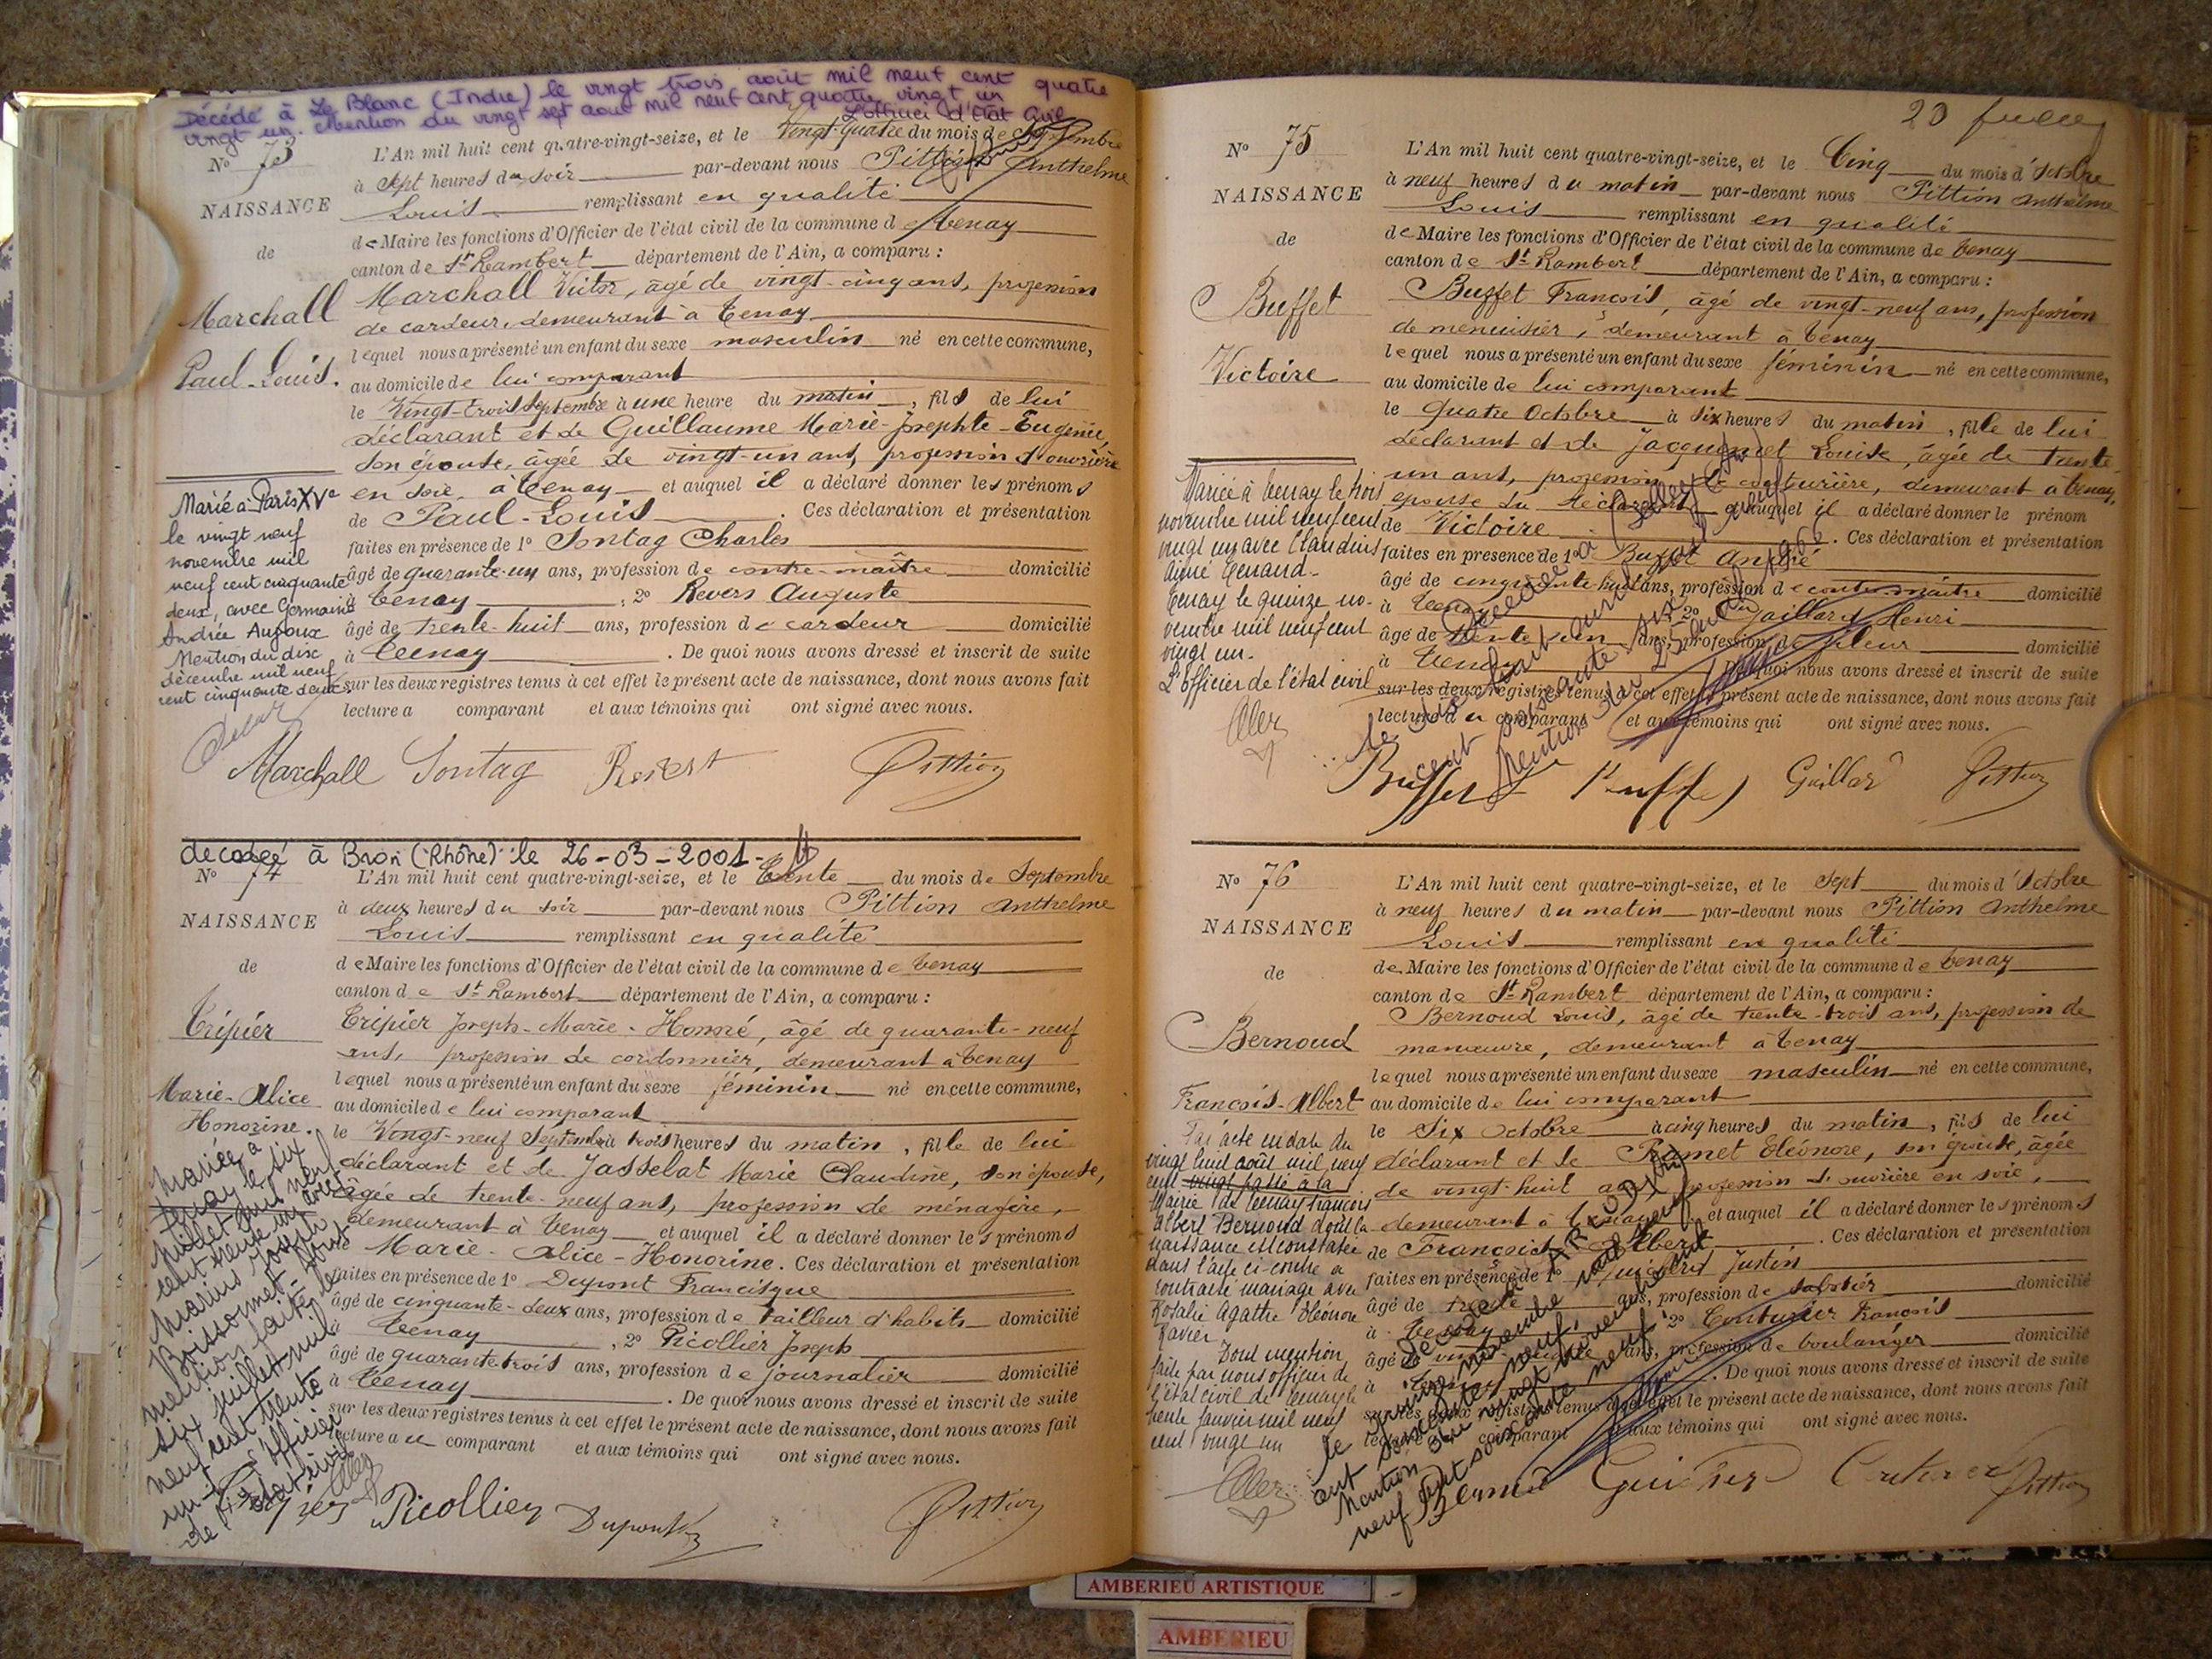 Décédé à Le Blanc (Indre) le vingt trois août mil neuf cent quatre
vingt un. Mention du vingt sept août mil neuf cent quatre vingt un
L'officier d'Etat Civil
N° 73
NAISSANCE
de
Marchall
Paul-Louis.
L'An mil huit cent quatre-vingt-seize, et le Vingt-quatre du mois de Septembre
à sept heures du soir par-devant nous Pittion Anthelme
Louis remplissant en qualité
de Maire les fonctions d'Officier de l'état civil de la commune de Tenay
canton de St Rambert département de l'Ain, a comparu :
Marchall Victor, âgé de vingt-cinq ans, profession
de cardeur, demeurant à Tenay
lequel nous a présenté un enfant du sexe masculin né en cette commune,
au domicile de lui comparant
le Vingt-trois Septembre à une heure du matin, fils de lui
déclarant et de Guillaume Marie-Josephte-Eugénie,
son épouse, âgée de vingt-un ans, profession d'ouvrière
en soie, à Tenay et auquel il a déclaré donner les prénoms
de Paul-Louis. Ces déclaration et présentation
faites en présence de 1° Sontag Charles
âgé de quarante-un ans, profession de contre-maître domicilié
à Tenay, 2° Revers Auguste
âgé de trente-huit ans, profession de cardeur domicilié
à Tenay. De quoi nous avons dressé et inscrit de suite
sur les deux registres tenus à cet effet le présent acte de naissance, dont nous avons fait
lecture a comparant et aux témoins qui ont signé avec nous.
Marié à Paris XVe
le vingt neuf
novembre mil
neuf cent cinquante
deux, avec Germaine
Andrée Aujoux
Mention du dix
décembre mil neuf
cent cinquante deux
Marchall Sontag Pittion
décédée à Bron (Rhône) le 26-03-2001-
N° 74
NAISSANCE
de
Tripier
Marie-Alice
Honorine.
L'An mil huit cent quatre-vingt-seize, et le Trente du mois de Septembre
à deux heures du soir par-devant nous Pittion Anthelme
Louis remplissant en qualité
de Maire les fonctions d'Officier de l'état civil de la commune de Tenay
canton de St Rambert département de l'Ain, a comparu :
Tripier Joseph-Marie-Honoré, âgé de quarante-neuf
ans, profession de cordonnier, demeurant à Tenay
lequel nous a présenté un enfant du sexe féminin né en cette commune,
au domicile de lui comparant
le Vingt-neuf Septembre à trois heures du matin, fille de lui
déclarant et de Jasselat Marie Claudine, son épouse,
âgée de trente-neuf ans, profession de ménagère,
demeurant à Tenay et auquel il a déclaré donner les prénoms
de Marie-Alice-Honorine. Ces déclaration et présentation
faites en présence de 1° Dupont Francisque
âgé de cinquante-deux ans, profession de tailleur d'habits domicilié
à Tenay, 2° Picollier Joseph
âgé de quarante trois ans, profession de journalier domicilié
à Tenay. De quoi nous avons dressé et inscrit de suite
sur les deux registres tenus à cet effet le présent acte de naissance, dont nous avons fait
lecture au comparant et aux témoins qui ont signé avec nous.
Mariée à
Tenay le six
juillet mil neuf
cent trente un avec
Marius Joseph
Boissonnet- Dont
mention faite le
six juillet mil
neuf cent trente
un. L'officier
de l'état civil
Picollier Dupont Pittion
20
N° 75
NAISSANCE
de
Buffet
Victoire
L'An mil huit cent quatre-vingt-seize, et le Cinq du mois d'Octobre
à neuf heures du matin par-devant nous Pittion Anthelme
Louis remplissant en qualité
de Maire les fonctions d'Officier de l'état civil de la commune de Tenay
canton de St Rambert département de l'Ain, a comparu :
Buffet François, âgé de vingt-neuf ans, profession
de menuisier, demeurant à Tenay
lequel nous a présenté un enfant du sexe féminin né en cette commune,
au domicile de lui comparant
le Quatre Octobre à six heures du matin, fille de lui
déclarant et de Jacquemet Louise, âgée de trente-
un ans, profession de couturière, demeurant à Tenay,
épouse du déclarant et auquel il a déclaré donner le prénom
de Victoire. Ces déclaration et présentation
faites en présence de 1° Buffet André
âgé de cinquante-huit ans, profession de contre-maître domicilié
à Tenay 2° Gaillard Henri
âgé de trente un ans, profession de fileur domicilié
à Tenay De quoi nous avons dressé et inscrit de suite
sur les deux registres tenus à cet effet le présent acte de naissance, dont nous avons fait
lecture au comparant et aux témoins qui ont signé avec nous.
Mariée à Tenay le trois
novembre mil neuf cent
vingt un avec Claudius
Aimé Genand-
Tenay le quinze no-
vembre mil neuf cent
vingt un.
L'officier de l'état civil
Décédée à Belley (Ain)
le dix huit avril mil neuf
cent soixante six
Mention du 25 avril 1966
Buffet Gaillard Pittion
N° 76
NAISSANCE
de
Bernoud
François-Albert
L'An mil huit cent quatre-vingt-seize, et le Sept du mois d'Octobre
à neuf heures du matin par-devant nous Pittion Anthelme
Louis remplissant en qualité
de Maire les fonctions d'Officier de l'état civil de la commune de Tenay
canton de St Rambert département de l'Ain, a comparu :
Bernoud Louis, âgé de trente-trois ans, profession de
manœuvre, demeurant à Tenay
lequel nous a présenté un enfant du sexe masculin né en cette commune,
au domicile de lui comparant
le Six Octobre à cinq heures du matin, fils de lui
déclarant et de Ramet Eléonore, son épouse, âgée
de vingt-huit ans, profession d'ouvrière en soie,
demeurant à Tenay et auquel il a déclaré donner les prénoms
de François-Albert. Ces déclaration et présentation
faites en présence de 1° Justin
âgé de trente ans, profession de domicilié
à Tenay 2° Couturier François
âgé de ans, profession de boulanger domicilié
à Tenay. De quoi nous avons dressé et inscrit de suite
sur les deux registres tenus à cet effet le présent acte de naissance, dont nous avons fait
lecture comparant et aux témoins qui ont signé avec nous.
Par acte en date du
vingt huit août mil neuf
cent vingt passé à la
Mairie de Tenay François
Albert Bernoud dont la
naissance est constatée
dans l'acte ci-contre a
contracté mariage avec
Rosalie Agathe Eléonore
Ravier.
Dont mention
faite par nous officier de
l'état civil de Tenay le
trente janvier mil neuf
cent vingt un
Décédé à
le novembre mil neuf
cent soixante neuf.
Mention du vingt novembre mil
neuf cent soixante neuf
Bernoud Pittion
AMBERIEU ARTISTIQUE
AMBERIEU